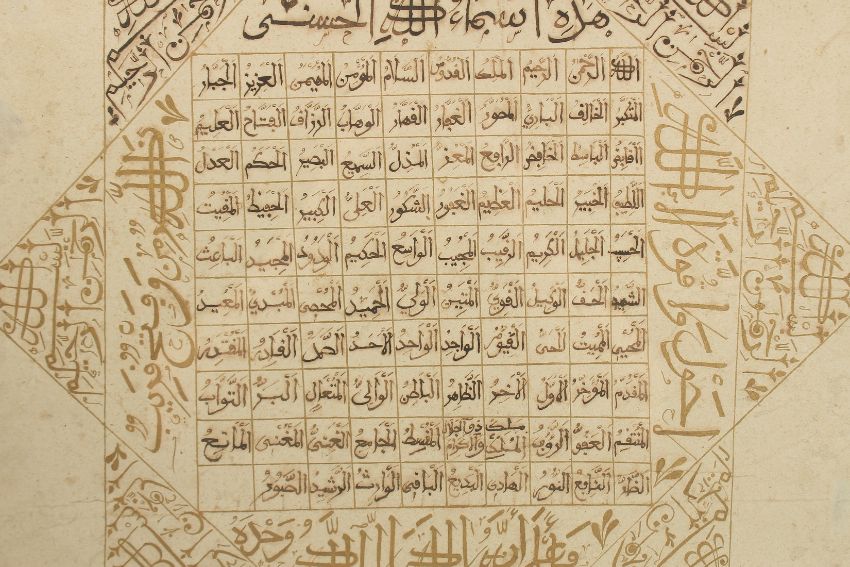 هذه اسماء الله الحسنى
الله الرحمن الرحيم الملك القدوس السلام المؤمن المهيمن العزيز الجبار
المتكبر الخالق الباري المصور الغفار القهار الوهاب الرزاق الفتاح العليم
القابض الباسط الخافض الرافع المعز المذل السميع البصير الحكم العدل
اللطيف الخبير الحليم العظيم الغفور الشكور العلي الكبير الحفيظ المقيت
الحسيب الجليل الكريم الرقيب المجيب الواسع الحكيم الودود المجيد الباعث
الشهيد الحق الوكيل القوي المتين الولي الحميد المحصي المبدي المعيد
المحيي المميت الحي القيوم الواجد الواحد الاحد الصمد القادر المقتدر
المقدم المؤخر الاول الاخر الظاهر الباطن الوالي المتعال البر التواب
المنتقم العفو الرؤف ملك الملك ذو الجلال والاكرام المقسط الجامع الغني المغني المانع
الضار النافع النور الهادي البديع الباقي الوارث الرشيد الصبور
لا حول ولا قوة الا بالله
نصر من الله وفتح قريب
وحده